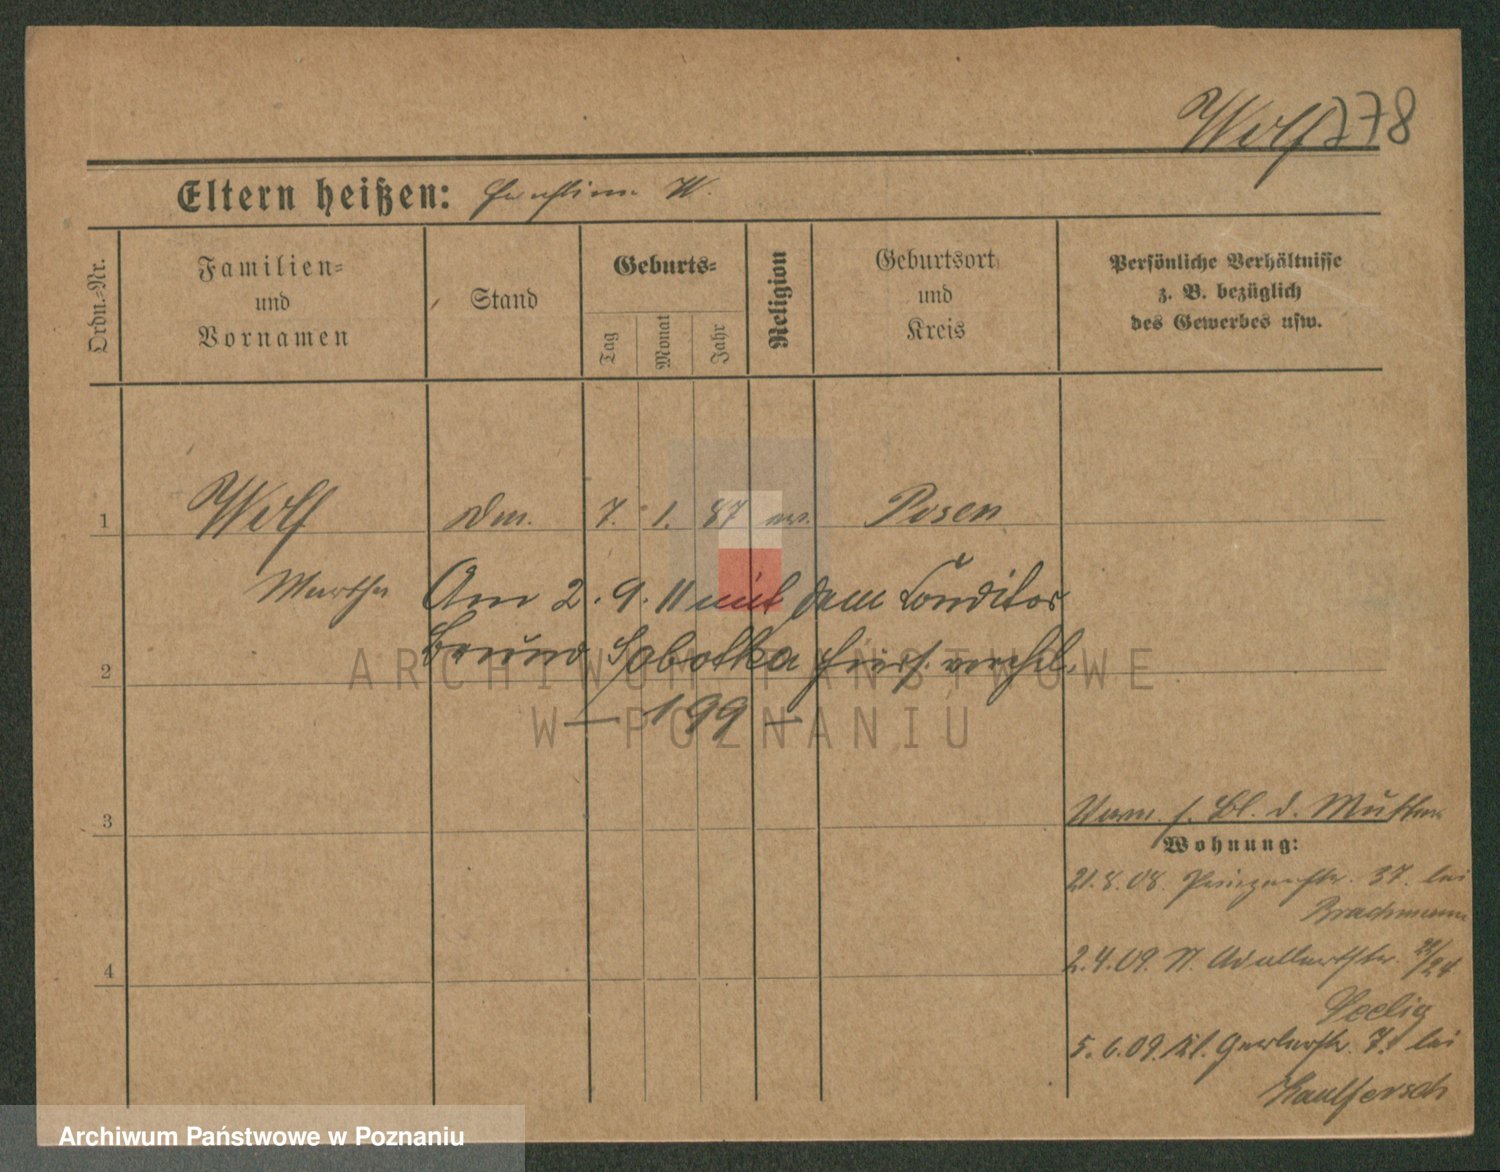 Wolf 278
Eltern heißen: W.
Ordn.-Nr.
Familien-
und
Vornamen
Stand
Geburts-
Tag
Monat
Jahr
Religion
Geburtsort
und
Kreis
Persönliche Verhältnisse
z. B. bezüglich
des Gewerbes usw.
1 Wolf Dm. 7. 1. 87 ev. Posen
Martha Am 2. 9. 11 mit dem Conditor
2 Bruno Sobotka hiers. verehl.
— 199 —
3
Verm. s. Bl. d. Mutter
Wohnung:
21.8.08. 37. bei
Brachmann
4
2.4.09. St. Adalbertstr.
Seelig
5.6.09. Kl. Gerberstr. 7. bei
ARCHIWUM PAŃSTWOWE
W POZNANIU
Archiwum Państwowe w Poznaniu